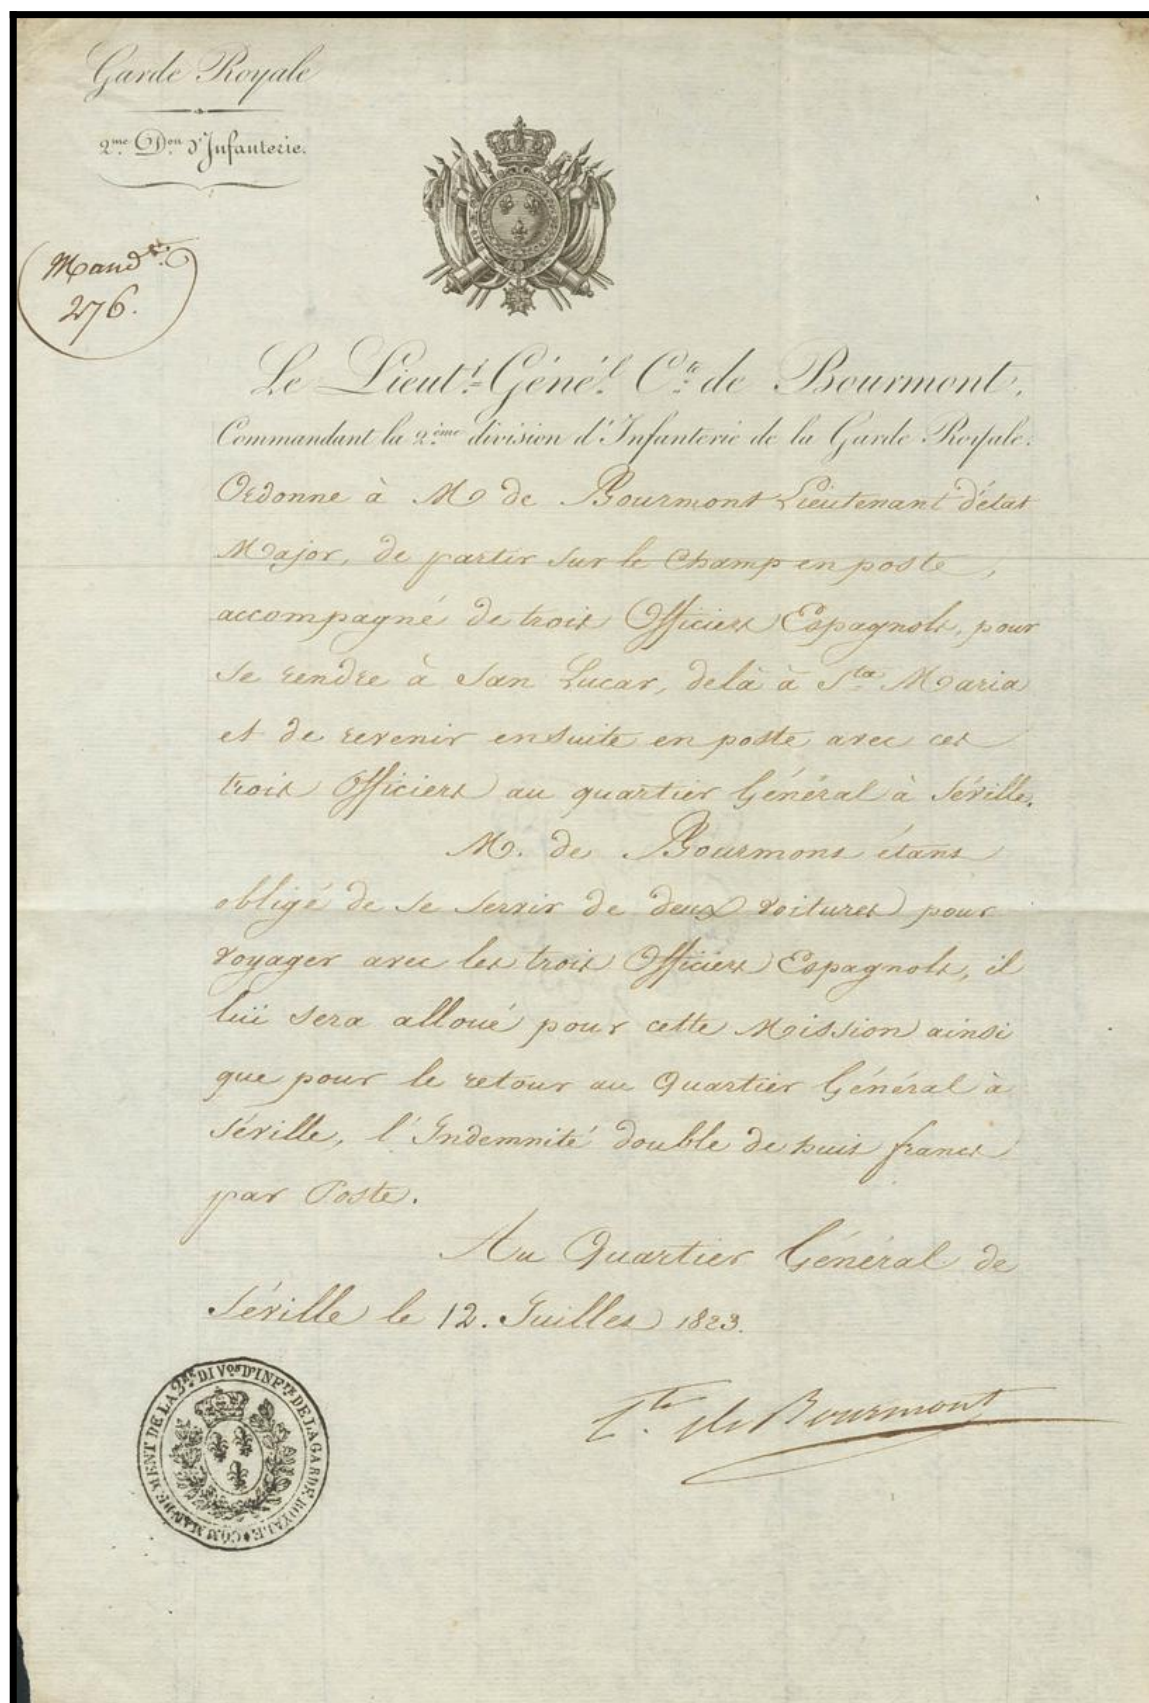 Garde Royale
2.me D.on d'Infanterie.
Mand.t
276.
Le Lieut.t Géné.l C.te de Bourmont,
Commandant la 2.ème division d'Infanterie de la Garde Royale.
Ordonne à M de Bourmont Lieutenant d'état
Major, de partir sur le Champ en poste,
accompagné de trois Officiers Espagnols, pour
se rendre à San Lucar, delà à S.ta Maria
et de revenir ensuite en poste avec ces
trois Officiers au quartier Général à Séville.
M. de Bourmont étant
obligé de se servir de deux voitures pour
voyager avec les trois Officiers Espagnols, il
lui sera alloué pour cette Mission ainsi
que pour le retour au Quartier Général à
Séville, l'Indemnité double de huit francs
par Poste.
Au Quartier Général de
Séville le 12. Juillet 1823.
C.te de Bourmont
COMMANDEMENT DE LA 2.me DIV.on D'INF.rie DE LA GARDE ROYALE